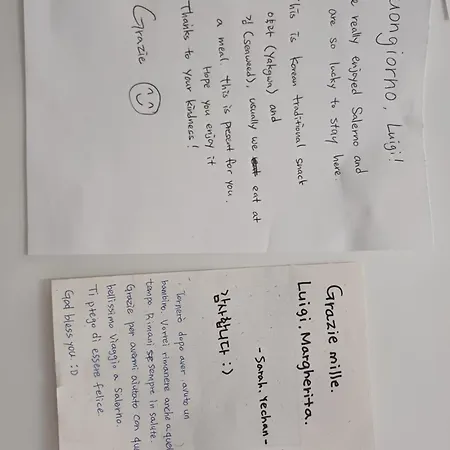 uongiorno, Luigi!
e really enjoyed Salerno and
are so lucky to stay here.
his is Korean traditional snack
약과 (Yakgwa) and
김 (seaweed), usually we eat at
a meal. this is present for you.
Hope you enjoy it
Thanks to your kindness!
Grazie
Grazie mille.
Luigi. Margherita.
- Sarah. Yechan -
감사합니다 :)
Tornerò dopo aver avuto un
bambino. Vorrei rimanere anche a quel
tempo. Rimani sempre in salute.
Grazie per avermi aiutato con qu
bellissimo viaggio a Salerno.
Ti prego di essere felice.
God bless you :D